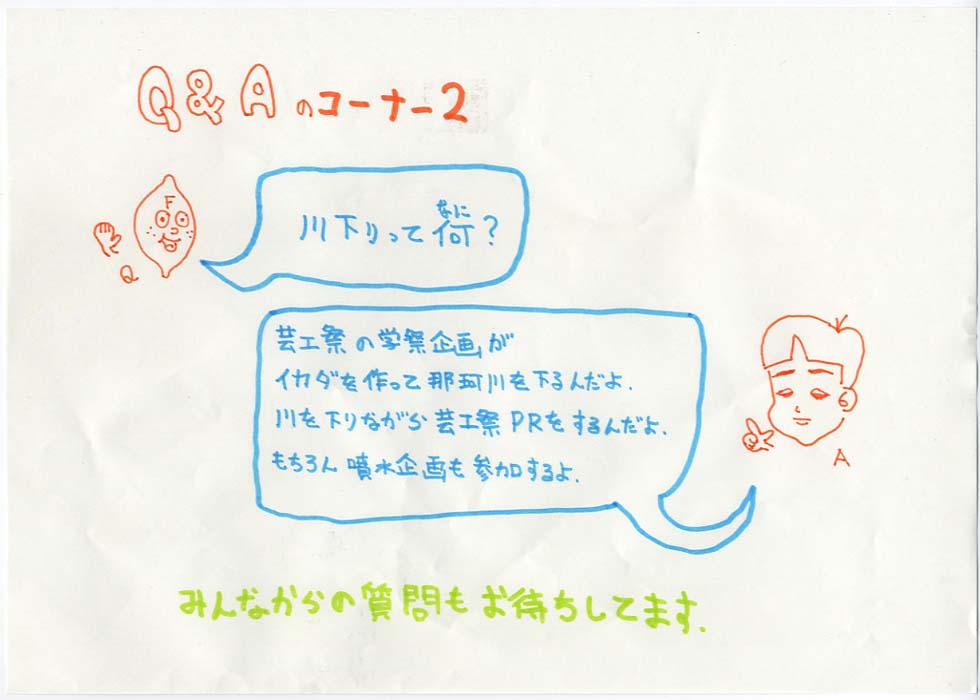 Q&Aのコーナー2
F
Q
なに
川下りって何?
芸工祭の学祭企画が
イカダを作って那珂川を下るんだよ.
川を下りながら芸工祭PRをするんだよ.
もちろん噴水企画も参加するよ.
A
みんなからの質問もお待ちしてます.